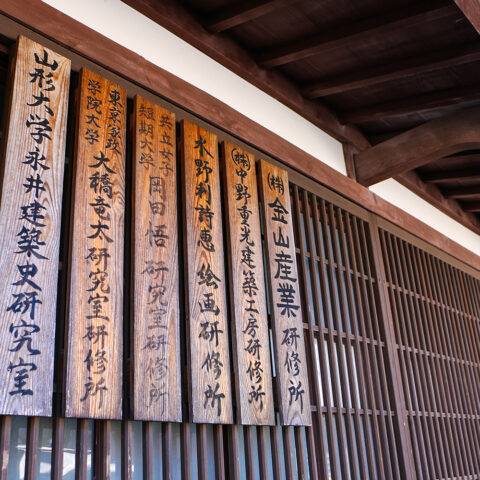 山形大学永井建築史研究室
東京家政
学院大学
大橋竜太研究室研修所
共立女子
短期大学
岡田悟研究室研修所
水野利詩恵絵画研修所
㈱中野重光建築工房研修所
㈱金山産業研修所